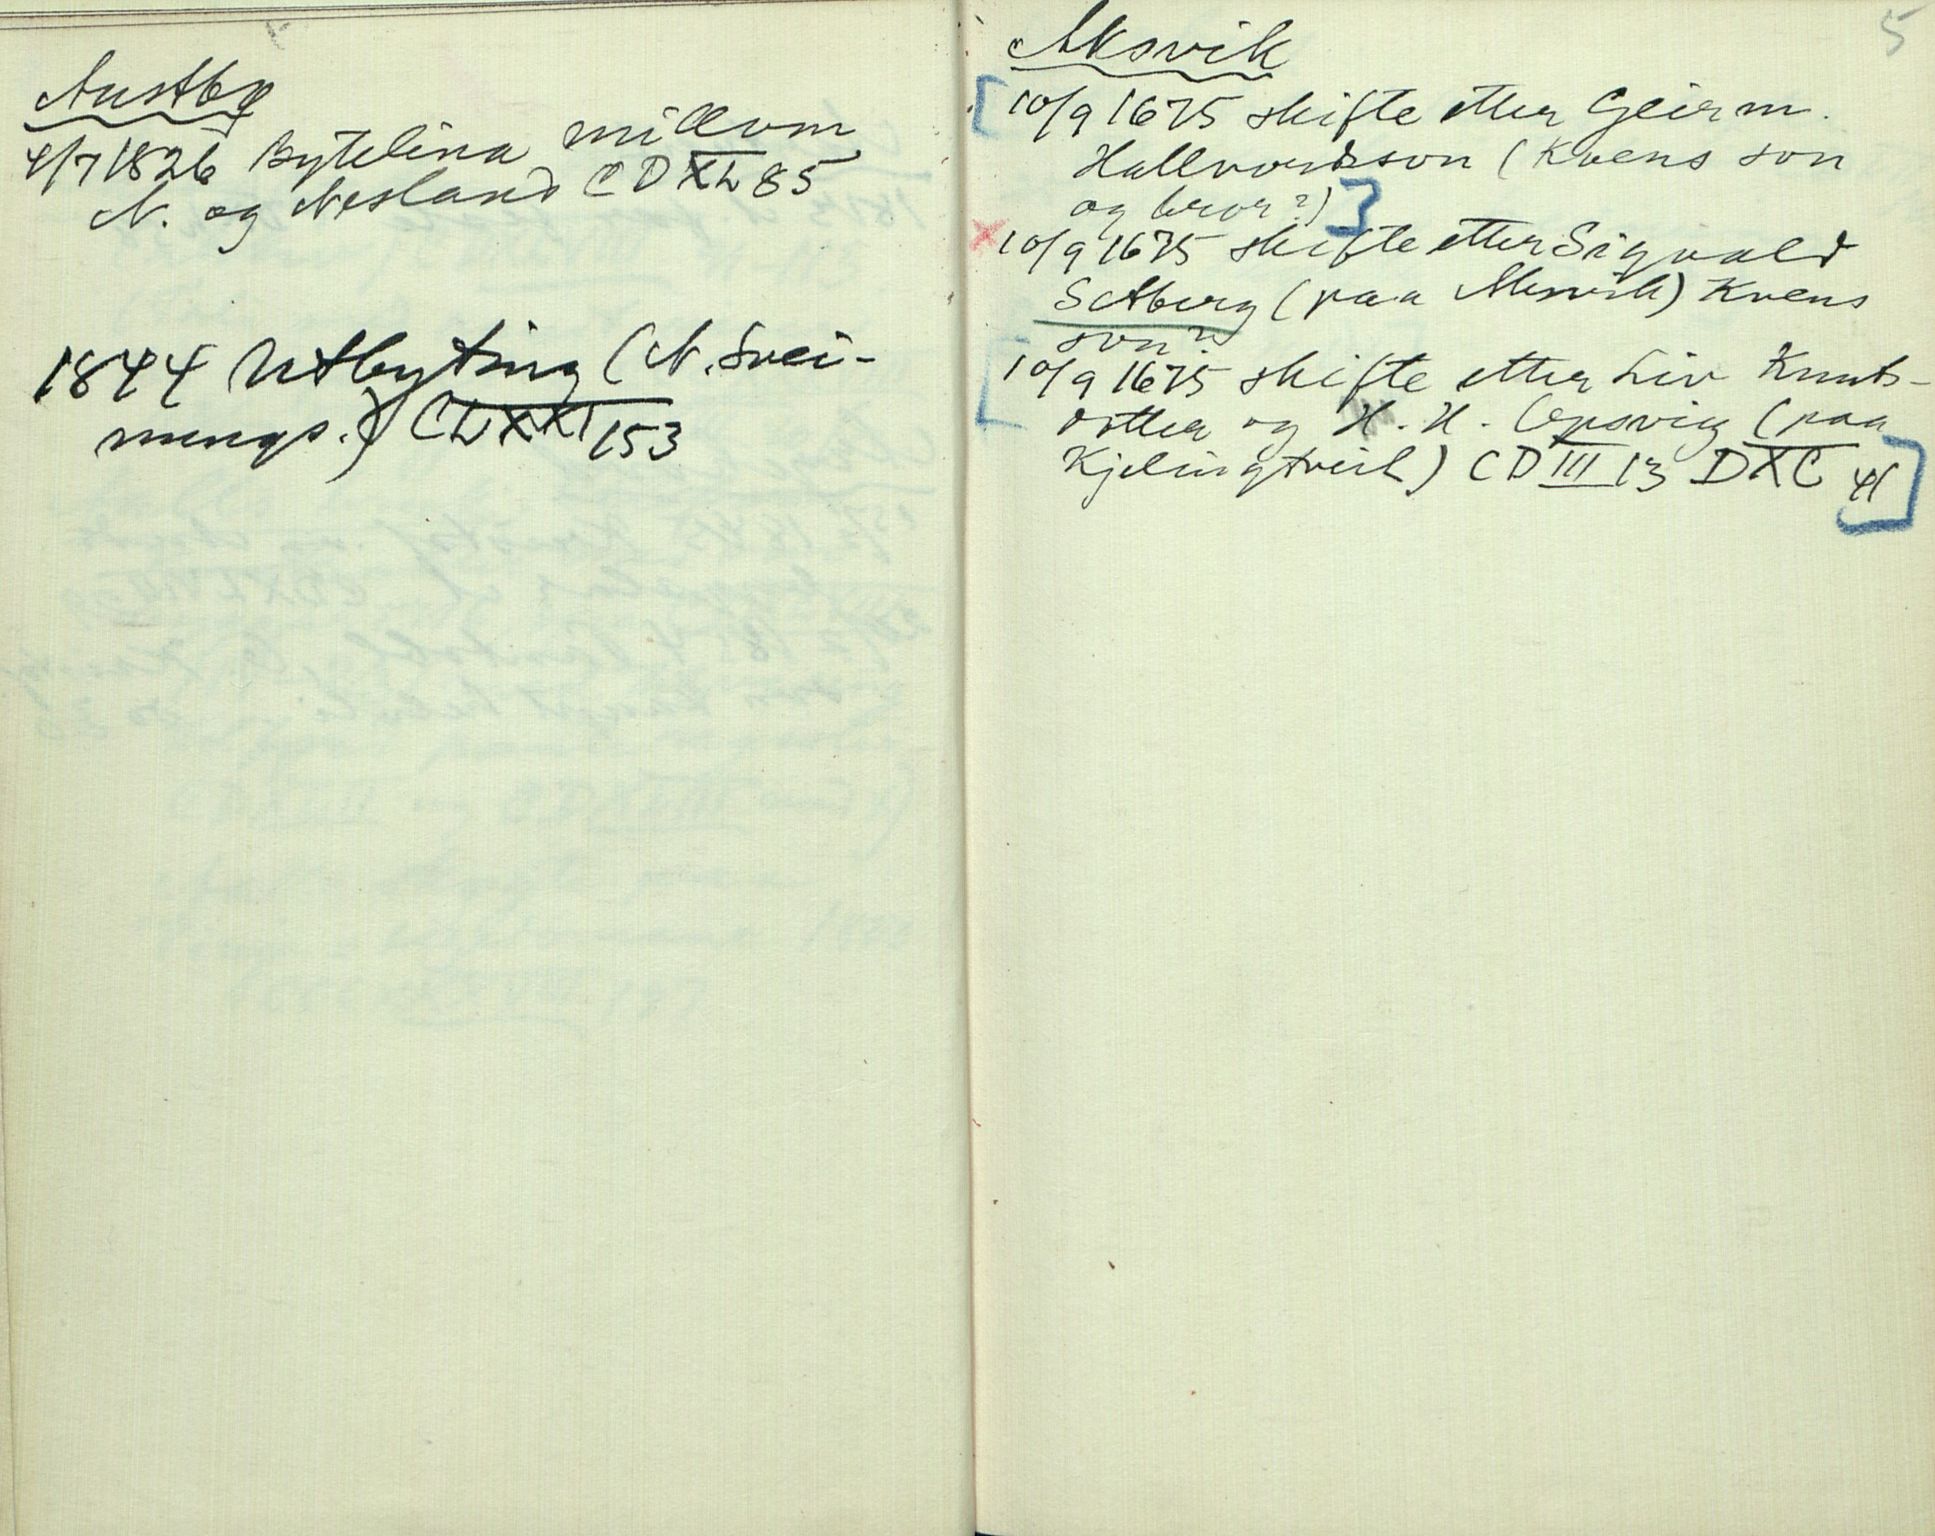 Austbø
4/7 1826 Bytelina millom
N. og Nesland CDXL 85
1844 Utbyting (N. Svei-
nungs.) CLXXI 153
5
Aksvik
[10/9 1675 skifte etter Geirm.
Hallvordsson (Kvens son
og bror?)]
x 10/9 1675 skifte etter Sigvald
Setberg (paa Aksvik) Kvens
son?
[10/9 1675 skifte etter Liv Knuts-
dotter og H. H. Opsvig (paa
Kjelingtveit) CDIII 13 DXC 41]